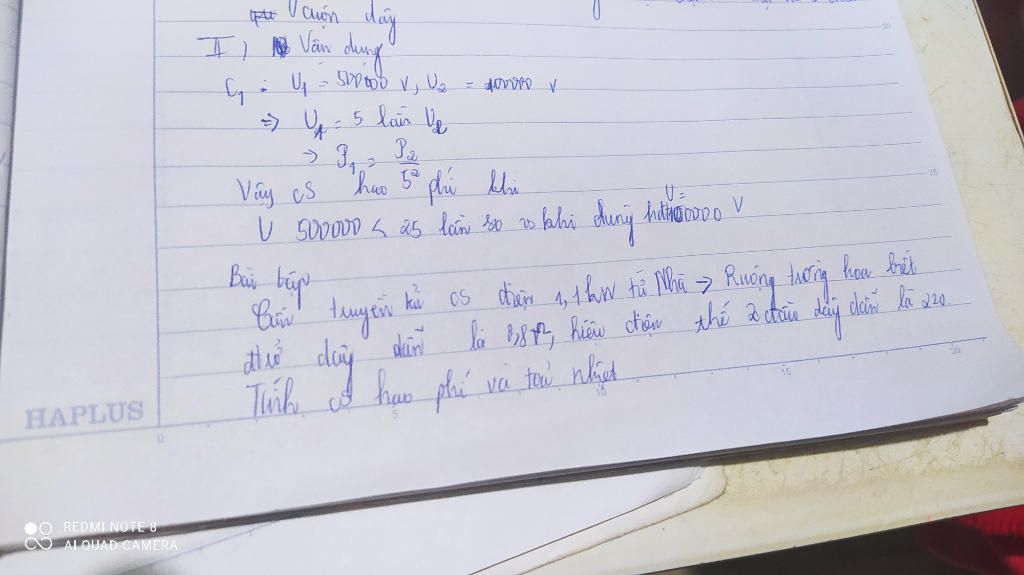 V cuộn dây
II) Vân dung
C1 : U1 = 500000 V, U2 = 100000 V
=> U1 = 5 lần U2
=> P1 = P2/5²
Vây cs hao phí khi
U 500000 < 25 lần so vs khi dung hđt U = 100000 V
Bài tập
Cần truyền tải cs điện 1,1kW từ Nhà → Ruộng tưởng hoa biết
đtrở dây dẫn là 3,8Ω, hiệu điện thế 2 đầu dây dẫn là 220.
Tính cs hao phí và toả nhiệt
HAPLUS
0 5 10 15 20
20
25
REDMI NOTE 8
AI QUAD CAMERA